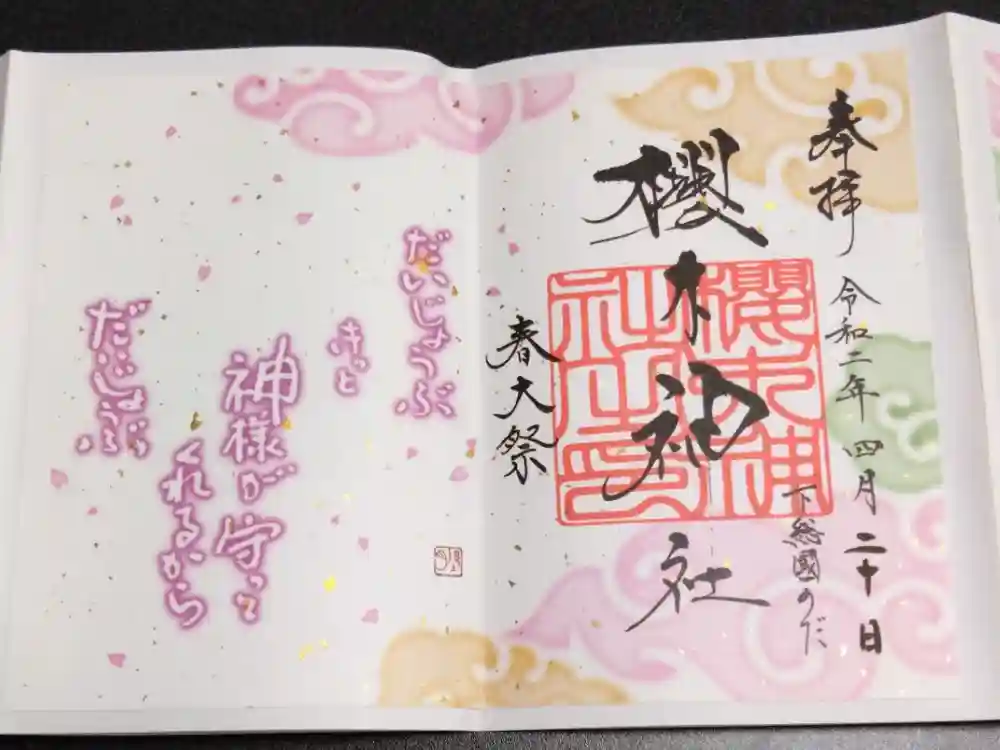 奉拝
令和二年 四月二十日
下総國のだ
櫻木神社
春大祭
だいじょうぶ
きっと
神様が守って
くれるから
だいじょぶっ